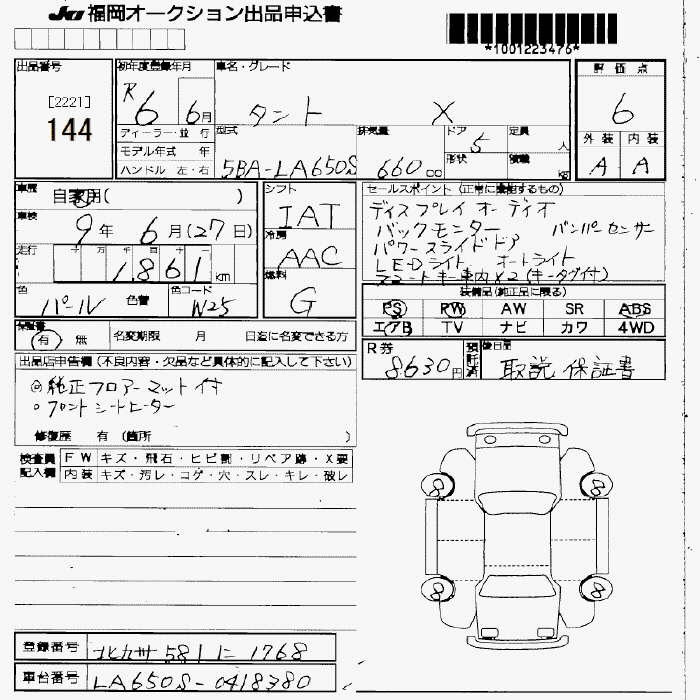 JU 福岡オークション出品申込書
*1001223476*
出品番号
[2221]
144
初年度登録年月
R6 6月
車名・グレード
タント X
評価点
6
ディーラー・並行
モデル年式 年
ハンドル 左・右
型式
5BA-LA650S
排気量
660 cc
ドア 5
形状
定員 人
積載 kg
外装 内装
A A
車歴 自家用( )
車検 9年 6月(27日)
走行 十万千百十一
1,861 km
色 パール 色替 色コード W25
シフト IAT
冷房 AAC
燃料 G
セールスポイント(正常に機能するもの)
ディスプレイオーディオ
バックモニター バンパーセンサー
パワースライドドア
LEDライト オートライト
スマートキー車内×2 (キータグ付)
装備品(純正品に限る)
PS PW AW SR ABS
エアB TV ナビ カワ 4WD
保証書 有 無 名変期限 月 日迄に名変できる方
R券 8630円 預託済 後日品 取説 保証書
出品店申告欄(不良内容・欠品など具体的に記入して下さい)
◎純正フロアーマット付
○フロントシートヒーター
修復歴 有 (箇所 )
検査員記入欄
FW キズ・飛石・ヒビ割・リペア跡・X要
内装 キズ・汚レ・コゲ・穴・スレ・キレ・破レ
8 8
8 8
登録番号 北九州 581 に 1768
車台番号 LA650S-0418380